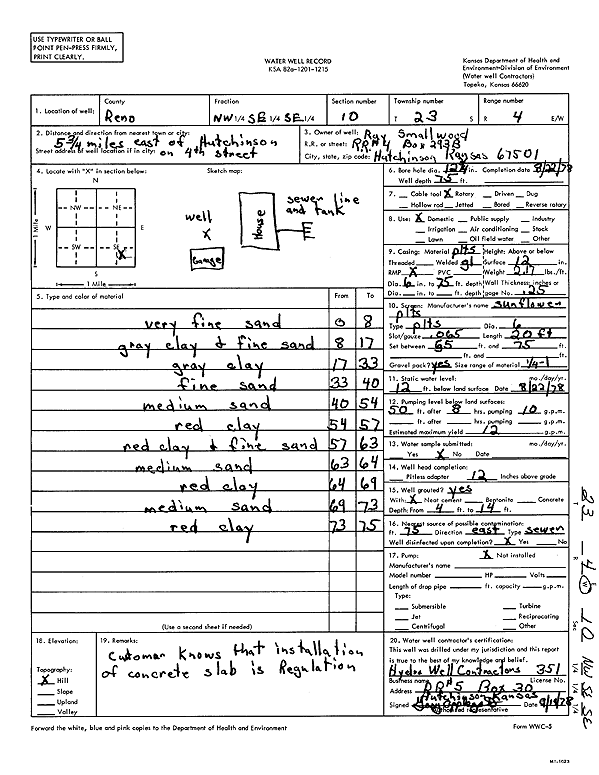 USE TYPEWRITER OR BALL
POINT PEN-PRESS FIRMLY,
PRINT CLEARLY.
WATER WELL RECORD
KSA 82a-1201-1215
Kansas Department of Health and
Environment-Division of Environment
(Water well Contractors)
Topeka, Kansas 66620
1. Location of well: County Reno Fraction NW 1/4 SE 1/4 SE 1/4 Section number 10 Township number T 23 S Range number R 4 E/W
2. Distance and direction from nearest town or city: 5 3/4 miles east of Hutchinson
Street address of well location if in city: on 4th street
3. Owner of well: Ray Smallwood
R.R. or street: RR#4 Box 293B
City, state, zip code: Hutchinson Kansas 67501
4. Locate with "X" in section below: Sketch map:
N
NW NE
W E
SW SE
X
S
1 Mile
1 Mile
well
X
Garage
House
sewer line
and tank
6. Bore hole dia. in. Completion date 8/22/78
Well depth 75 ft.
7. Cable tool X Rotary Driven Dug
Hollow rod Jetted Bored Reverse rotary
8. Use: X Domestic Public supply Industry
Irrigation Air conditioning Stock
Lawn Oil field water Other
9. Casing: Material plts Height: Above or below
Threaded Welded gl Surface 12 in.
RMP X PVC Weight 2.17 lbs./ft.
Dia. 6 in. to 75 ft. depth Wall Thickness: inches or
Dia. in. to ft. depth gage No. .125
5. Type and color of material From To
very fine sand 0 8
gray clay & fine sand 8 17
gray clay 17 33
fine sand 33 40
medium sand 40 54
red clay 54 57
red clay & fine sand 57 63
medium sand 63 64
red clay 64 69
medium sand 69 73
red clay 73 75
(Use a second sheet if needed)
10. Screen: Manufacturer's name sunflower
plts
Type plts Dia. 6
Slot/gauze .065 Length 20 ft
Set between 65 ft. and 75 ft.
ft. and ft.
Gravel pack? yes Size range of material 1/4-1
11. Static water level: mo./day/yr.
12 ft. below land surface Date 8/22/78
12. Pumping level below land surfaces:
50 ft. after 8 hrs. pumping 10 g.p.m.
ft. after hrs. pumping g.p.m.
Estimated maximum yield 12 g.p.m.
13. Water sample submitted: mo./day/yr.
Yes X No Date
14. Well head completion:
Pitless adapter 12 Inches above grade
15. Well grouted? yes
With: X Neat cement Bentonite Concrete
Depth: From 4 ft. to 14 ft.
16. Nearest source of possible contamination:
ft. 75 Direction east Type sewer
Well disinfected upon completion? X Yes No
17. Pump: X Not installed
Manufacturer's name
Model number HP Volts
Length of drop pipe ft. capacity g.p.m.
Type:
Submersible Turbine
Jet Reciprocating
Centrifugal Other
18. Elevation:
Topography:
X Hill
Slope
Upland
Valley
19. Remarks:
Customer knows that installation
of concrete slab is Regulation
20. Water well contractor's certification:
This well was drilled under my jurisdiction and this report
is true to the best of my knowledge and belief.
Hydro Well Contractors 351
Business name License No.
Address RR#5 Box 30
Hutchinson Kansas
Signed Date
Authorized representative
Forward the white, blue and pink copies to the Department of Health and Environment
Form WWC-5
T 23 R 4 W Sec 10 1/4 NW 1/4 SE 1/4 SE